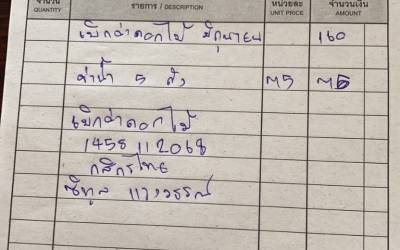 จำนวน รายการ / DESCRIPTION หน่วยละ จำนวนเงิน
QUANTITY UNIT PRICE AMOUNT
เบิกค่าดอกไม้ มิถุนายน 160
ค่าน้ำ 5 ถัง 75 75
เบิกค่าดอกไม้
1458112068
กสิกรไทย